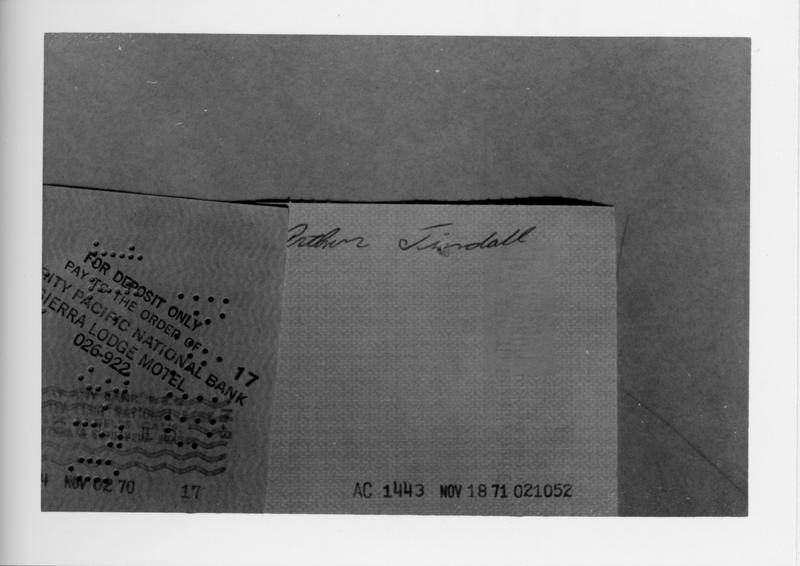 FOR DEPOSIT ONLY
PAY TO THE ORDER OF
RITY PACIFIC NATIONAL BANK 17
SIERRA LODGE MOTEL
026-922
4 NOV 02 70 17
Arthur Tindall
AC 1443 NOV 18 71 021052